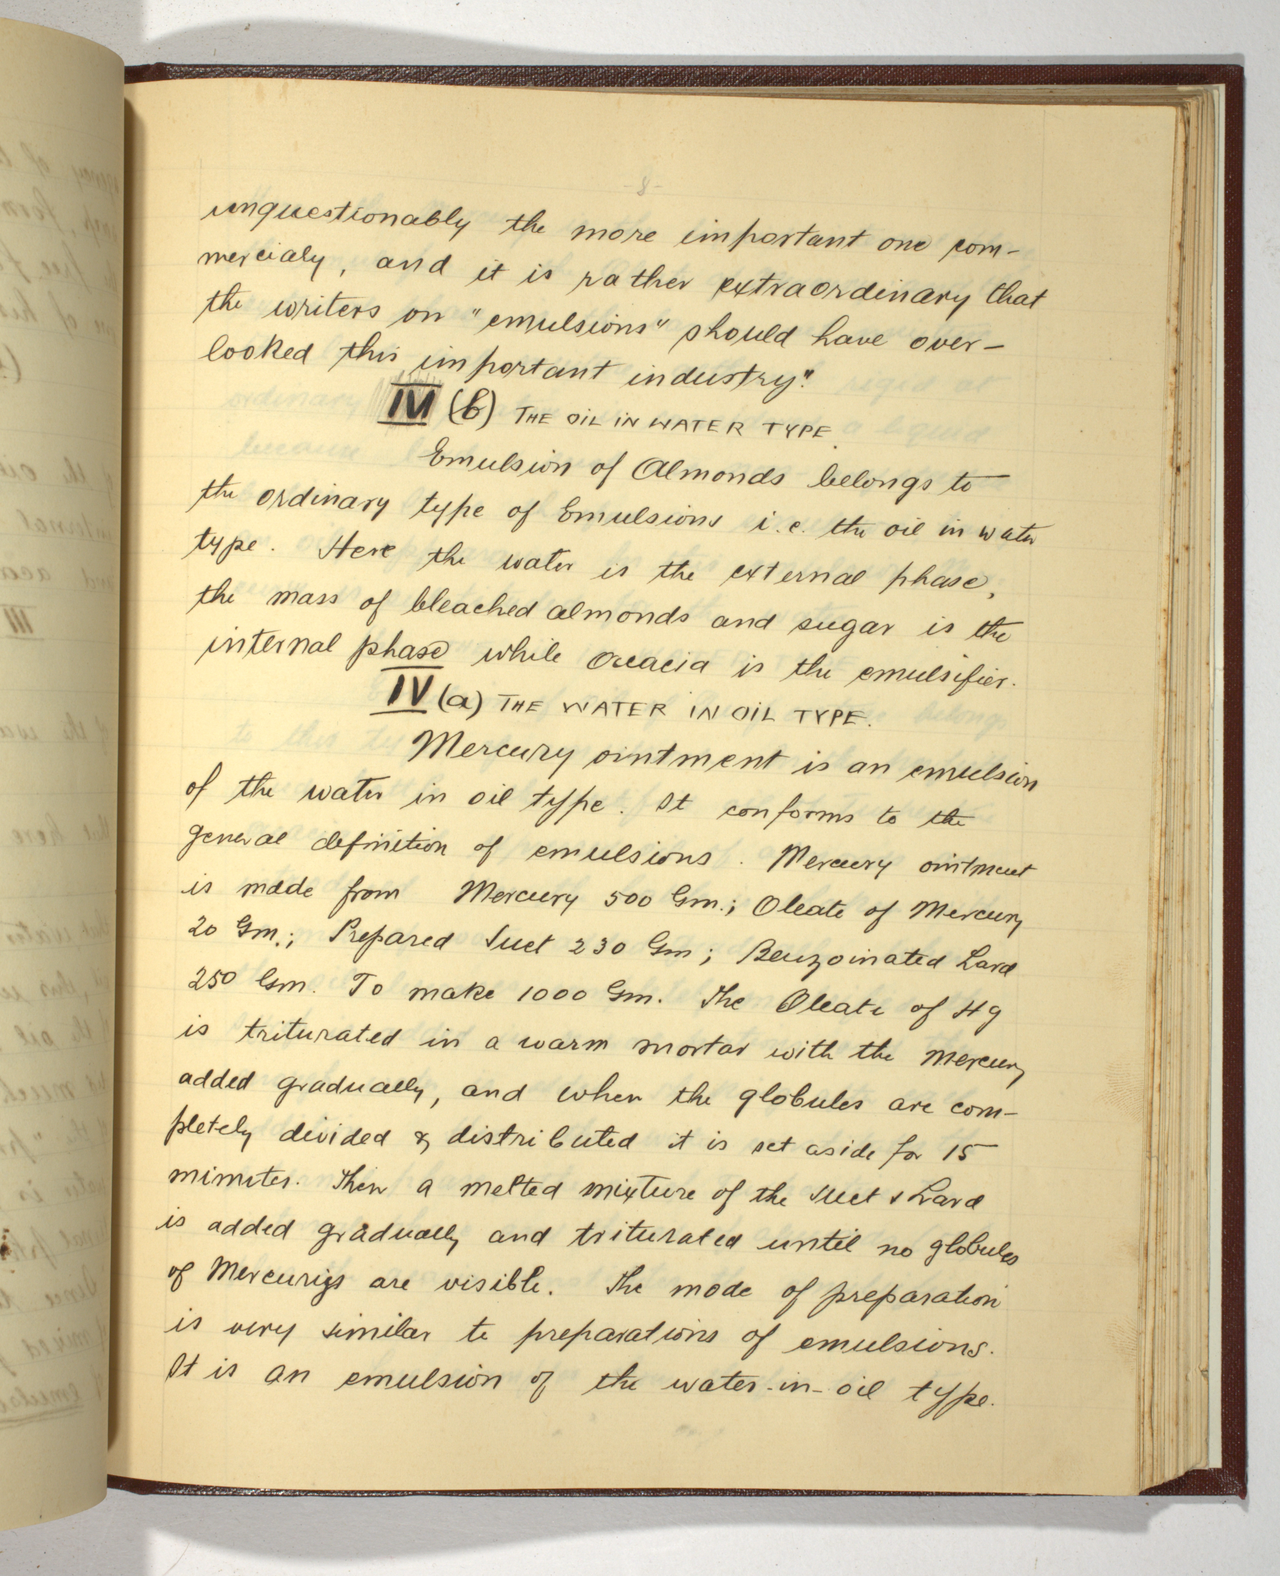 -8-
unquestionably the more important one com-
mercialy, and it is rather extraordinary that
the writers on "emulsions" should have over-
looked this important industry."
IV (b) THE OIL IN WATER TYPE.
Emulsion of Almonds belongs to
the ordinary type of Emulsions i.e. the oil in water
type. Here the water is the external phase,
the mass of bleached almonds and sugar is the
internal phase while accacia is the emulsifier.
IV (a) THE WATER IN OIL TYPE.
Mercury ointment is an emulsion
of the water in oil type. It conforms to the
general definition of emulsions. Mercury ointment
is made from Mercury 500 Gm.; Oleate of Mercury
20 Gm.; Prepared Suet 230 Gm; Benzoinated Lard
250 Gm. To make 1000 Gm. The Oleate of Hg
is triturated in a warm mortar with the mercury
added gradually, and when the globules are com-
pletely divided & distributed it is set aside for 15
minutes. Then a melted mixture of the Suet & Lard
is added gradually and triturated until no globules
of Mercury are visible. The mode of preparation
is very similar to preparations of emulsions.
It is an emulsion of the water-in-oil type.